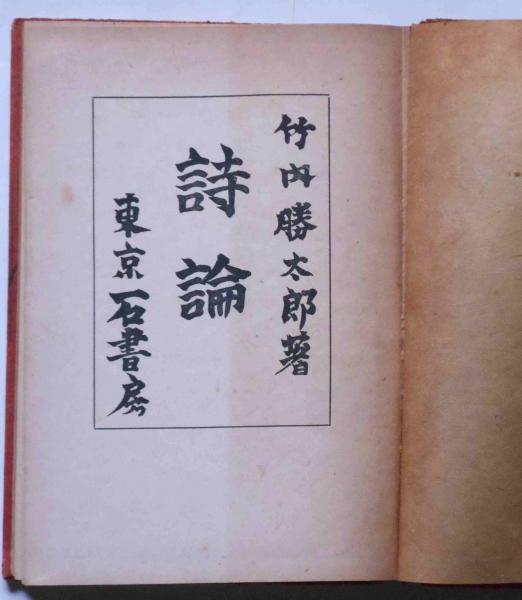 竹内勝太郎著
詩論
東京石書房